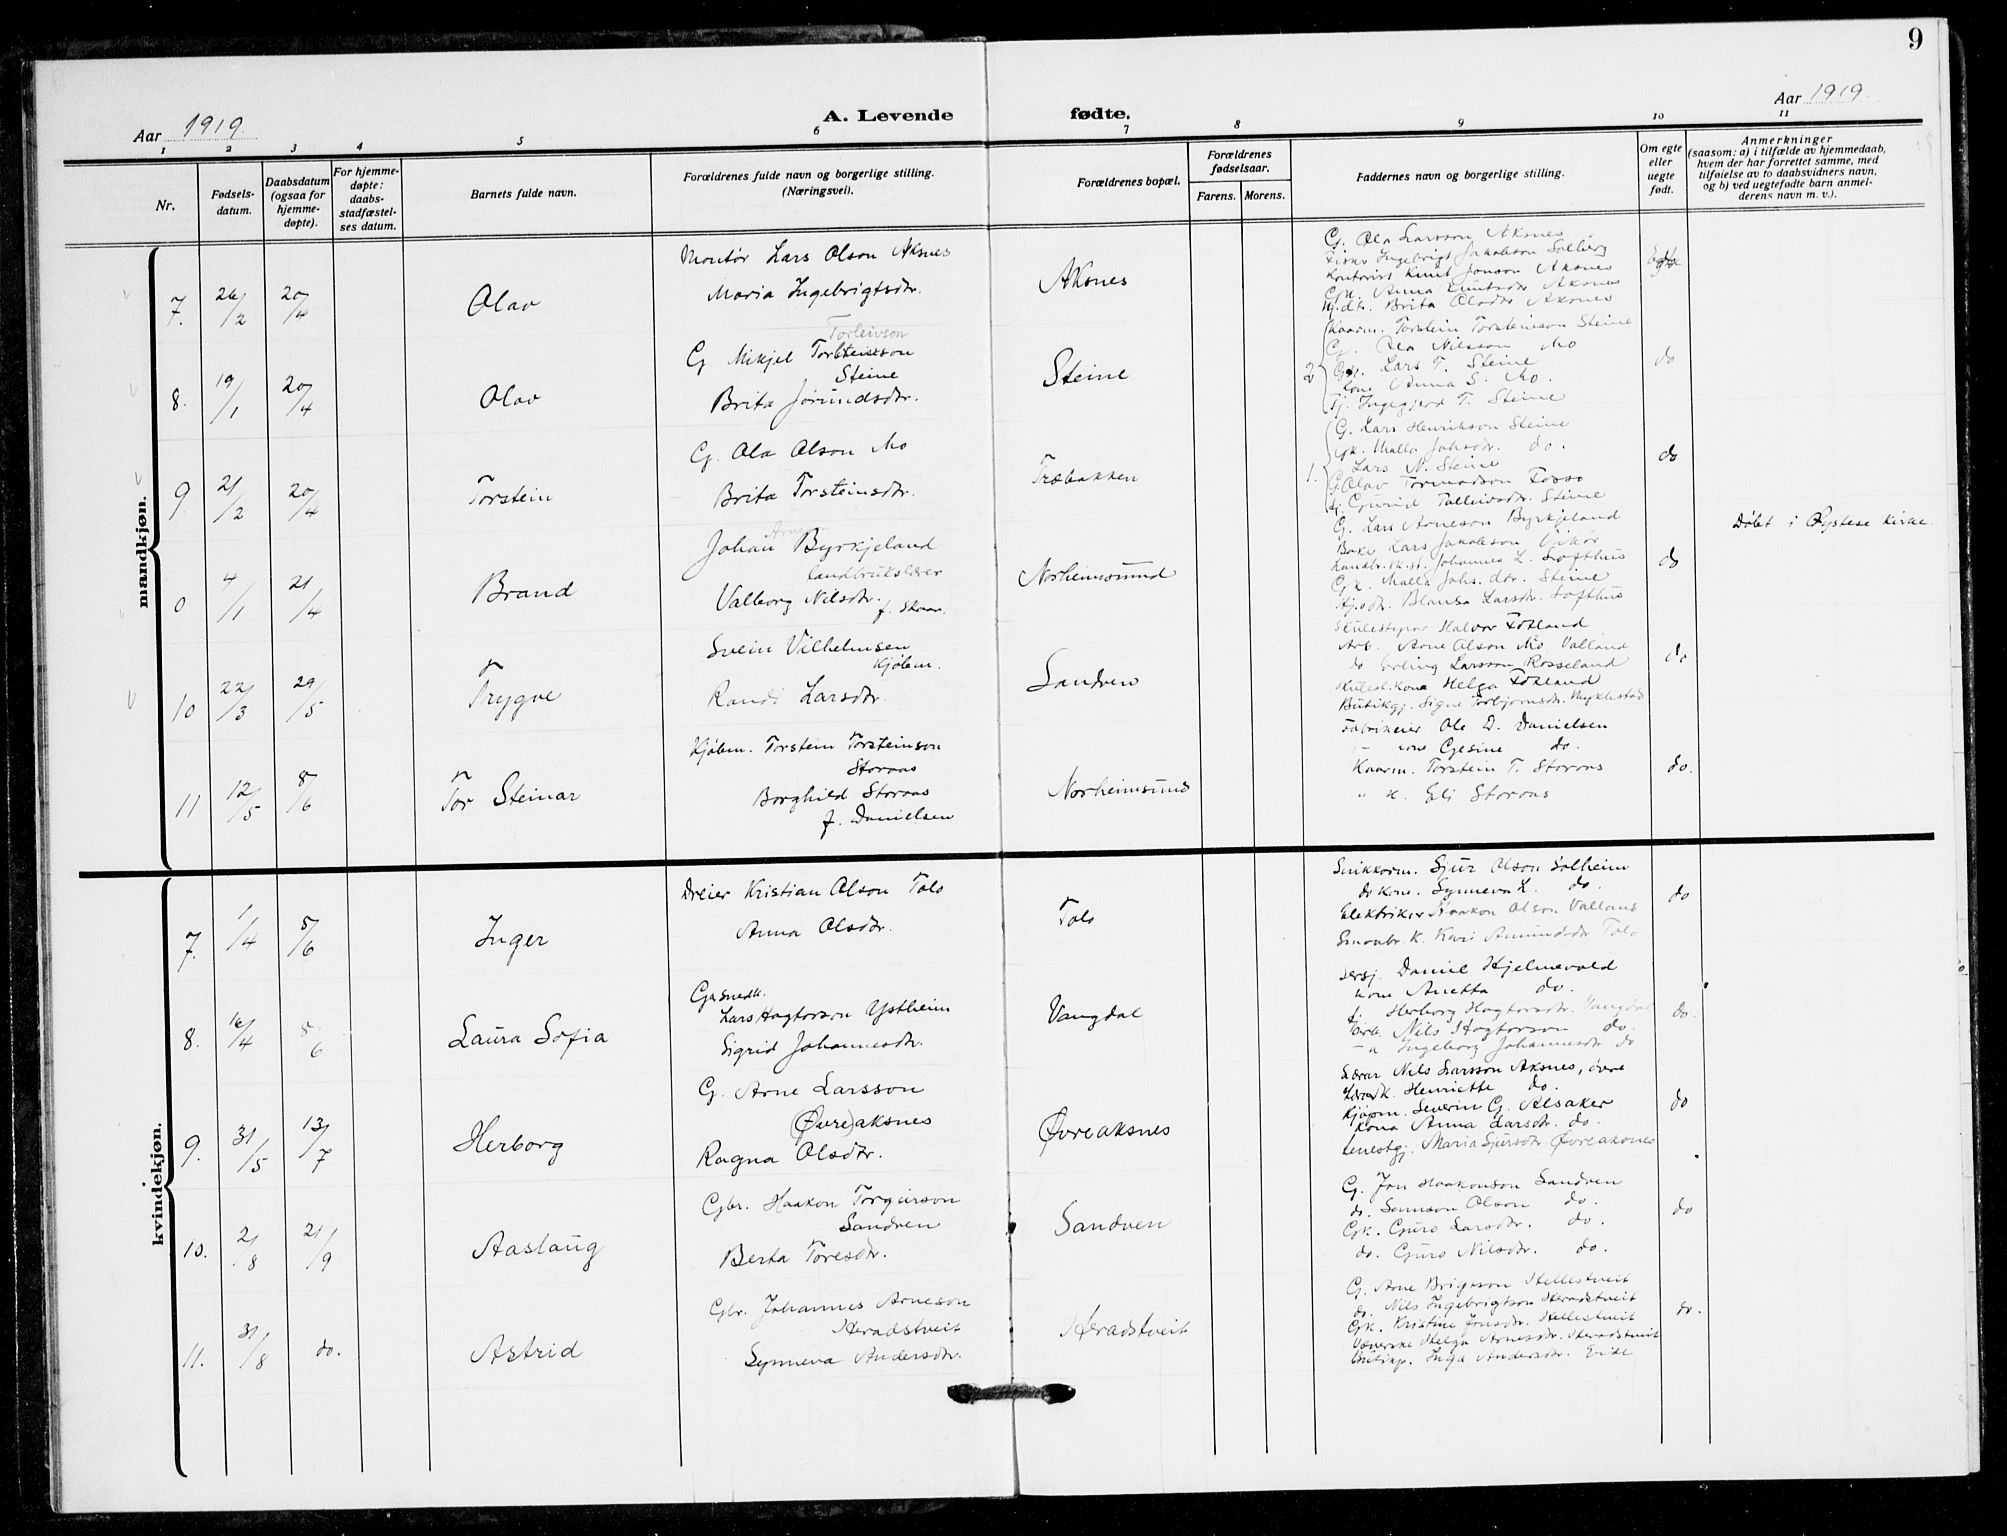 9
Aar 1919.
A. Levende fødte.
Aar 1919.
1 2 3 4 5 6 7 8 9 10 11
Nr.
Fødsels-
datum.
Daabsdatum
(ogsaa for
hjemme-
døpte).
For hjemme-
døpte:
daabs-
stadfæstel-
ses datum.
Barnets fulde navn.
Forældrenes fulde navn og borgerlige stilling.
(Næringsvei).
Forældrenes bopæl.
Forældrenes
fødselsaar.
Farens. Morens.
Faddernes navn og borgerlige stilling.
Om egte
eller
uegte
født.
Anmerkninger
(saasom: a) i tilfælde av hjemmedaab,
hvem der har forrettet samme, med
tilføielse av to daabsvidners navn,
og b) ved uegtefødte barn anmel-
derens navn m. v.).
mandkjøn.
7. 26/2 20/4 Olav
Montør Lars Olson Aksnes
Maria Ingebrigtsdtr.
Aksnes
G. Ola Larsson Aksnes
Ingebrigt Jakobson Solberg
Kontorist Knut Jonson Aksnes
Gk. Anna Knutsdtr Aksnes
Brita Olsdtr Aksnes
8. 19/1 20/4 Olav
Torleivson
G Mikjel Torsteinson
Steine
Brita Jørundsdtr.
Steine
Torstein Torsteinson Steine
G. Ola Nilsson Mo
2 Lars T. Steine
Anna S. Mo.
Ingegjerd T. Steine
do
9. 21/2 20/4 Torstein
G. Ola Olson Mo
Brita Torsteinsdtr.
Træbakken
G. Lars Henrikson Steine
Gk. Malla Johsdtr. do.
1. Lars N. Steine
G. Olav Tormodson Fosso
Gunrid Tolleivsdtr. Steine
do
0 4/1 21/4 Brand
Arneson
Johan Byrkjeland
landbrukslærer
Valborg Nilsdtr.
f. Skaar.
Norheimsund
G. Lars Arneson Byrkjeland
Lars Jakobson Vikør
Johannes L. Softhus
Gk. Malla Johs. dtr. Steine
Blansa Larsdtr. Softhus
do
Døbt i Øystese kirke.
10 22/3 29/5 Trygve
Svein Vilhelmsen
Kjøbm.
Randi Larsdtr.
Sandven
Skulestyrar Halvor Fotland
Arb. Arne Olson Mo Valland
do Erling Larsson Rosseland
Helga Fotland
Butikgj. Signe Torbjørnsdtr. Myklestad
do
11 12/5 8/6 Tor Steinar
Kjøbm. Torstein Torsteinson
Storaas
Borghild Storaas
f. Danielsen
Norheimsund
Fabrikeier Ole D. Danielsen
Gesine do.
Kaarm. Torstein T. Storaas
" k. Eli Storaas
do.
kvindekjøn.
7. 1/4 5/6 Inger
Dreier Kristian Olson Tolo
Anna Olsdtr.
Tolo
Snikkarm. Sjur Olson Solheim
do kone. Synneva L. do.
Elektriker Haakon Olson Valland
Smaabr. k. Kari Amundsdtr. Tolo.
do
8. 16/4 5/6 Laura Sofia
G. smedk.
Lars Hagtorson Ystheim
Sigrid Johannesdtr.
Vangdal
Sersj. Daniel Hjelmevold
kone Anetta do.
Herborg Hagtorsdtr. Vangdal
arb. Nils Hagtorson do.
Ingeborg Johannesdtr do
do.
9. 31/5 13/7 Herborg
G. Arne Larsson
(Øvre)aksnes
Ragna Olsdtr.
Øvreaksnes
Lærar Nils Larsson Aksnes, øvre
Henriette do.
Kjøpm. Severin G. Alsaker
Kona Anna Larsdtr. do.
tenestgj. Maria Sjursdtr. Øvreaksnes
do
10. 2/8 21/9 Aaslaug
Gbr. Haakon Torgeirson
Sandven
Berta Toresdtr.
Sandven
G. Jon Haakonson Sandven
do. Samson Olson do.
Gk. Guro Larsdtr. do.
do. Guro Nilsdtr. do.
do
11. 31/8 do. Astrid
Gbr. Johannes Arneson
Heradstveit
Synneva Andersdtr.
Heradstveit
G. Arne Brigtson Hellestveit
do. Nils Ingebrigtson Heradstveit
Gk. Kristine Jonsdtr. Hellestveit
Helga Arnesdtr. Heradstveit
Inga Andersdtr.
do.